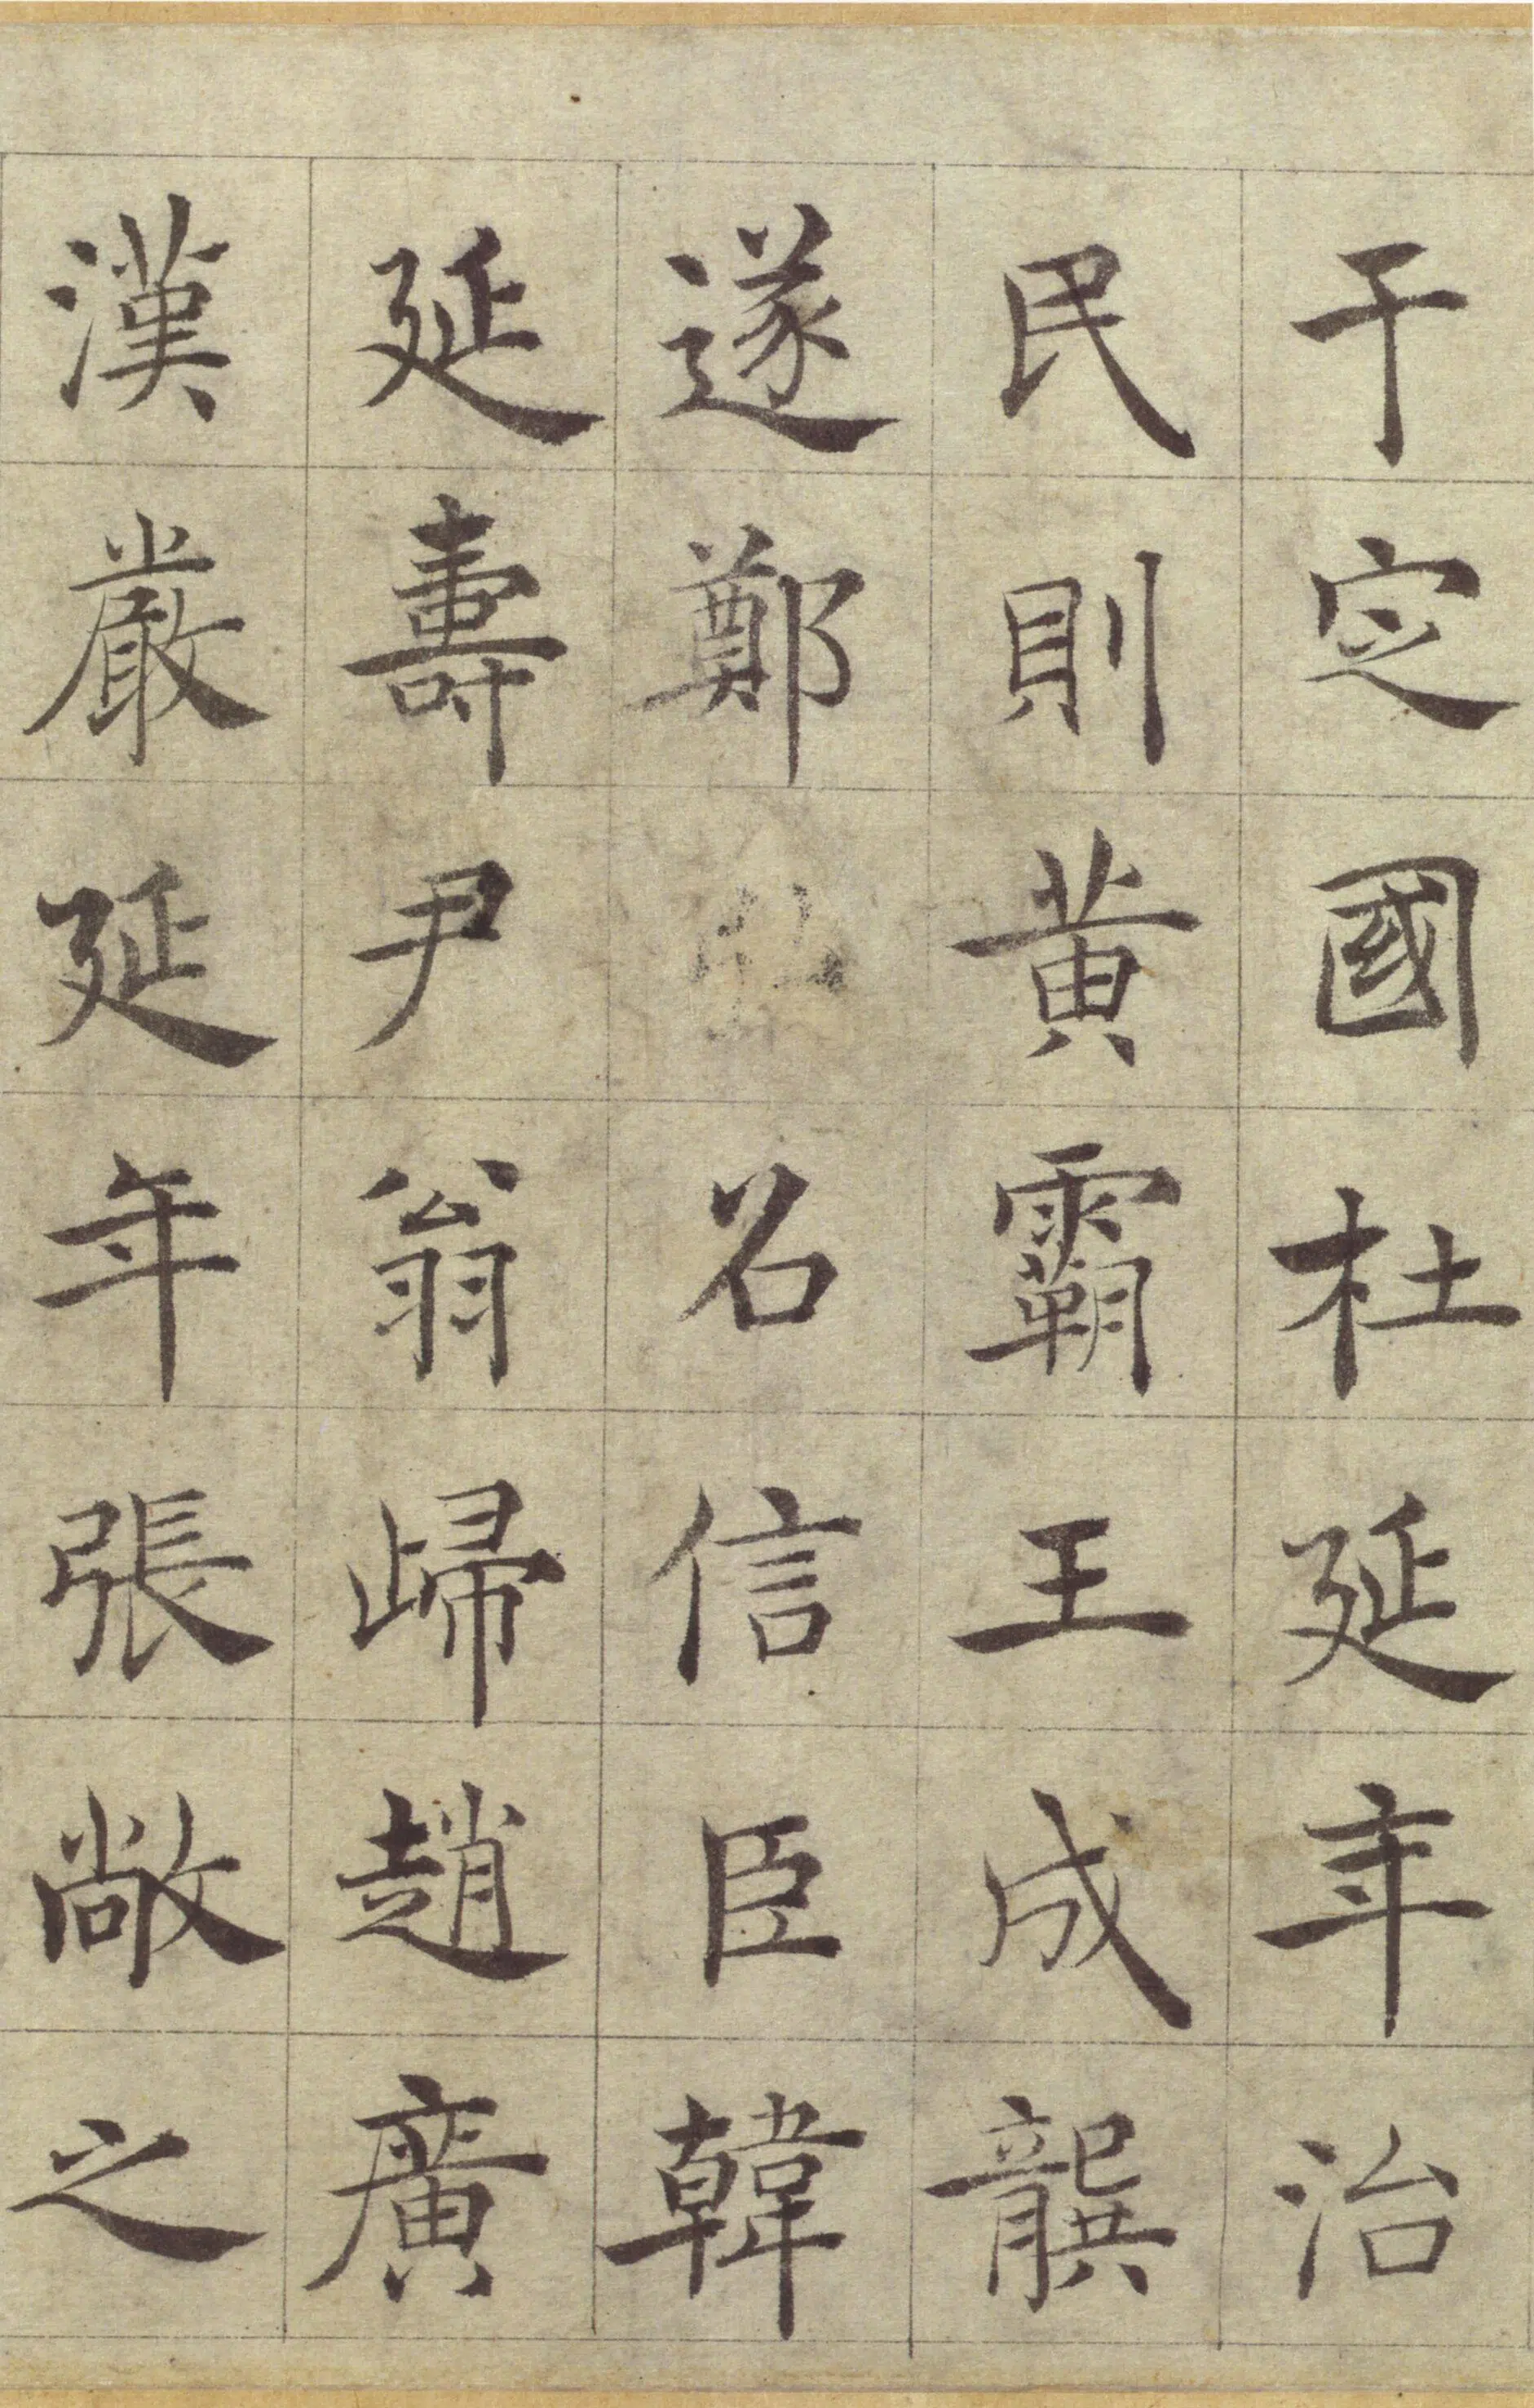 于定國杜延年治
民則黃霸王成龔
遂鄭名信臣韓
延壽尹翁歸趙廣
漢嚴延年張敞之